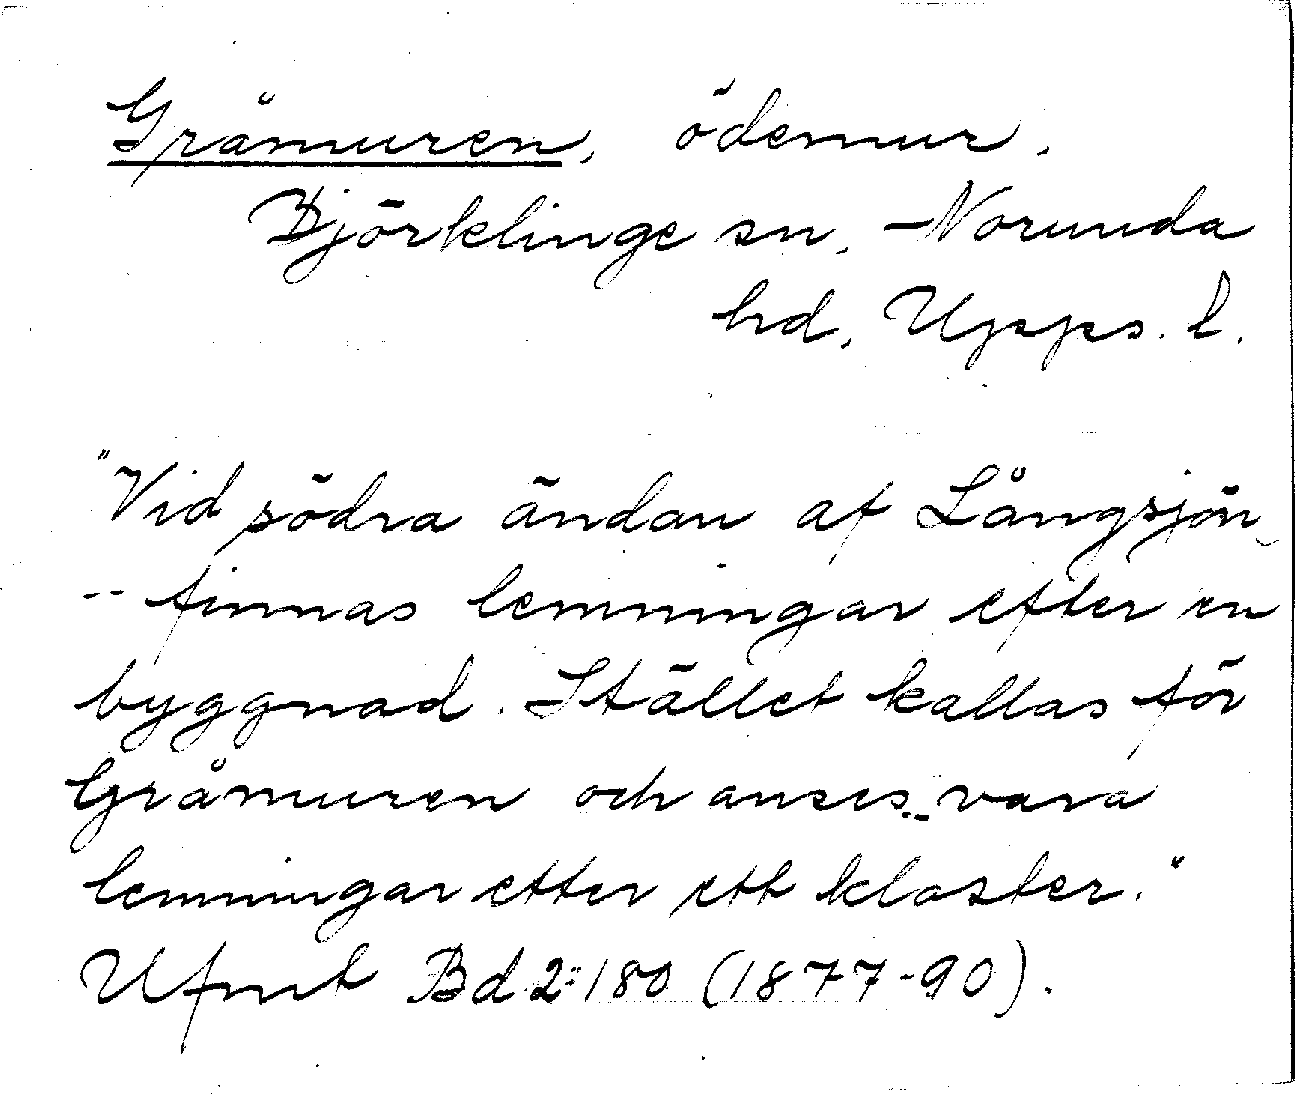 Gråmuren, ödemur.
Björklinge sn, Norunda
hd, Upps. l.
"Vid södra ändan af Långsjön
-- finnas lemningar efter en
byggnad. Stället kallas för
Gråmuren och anses.. vara
lemningar efter ett kloster."
Ufmt Bd 2:180 (1877-90).